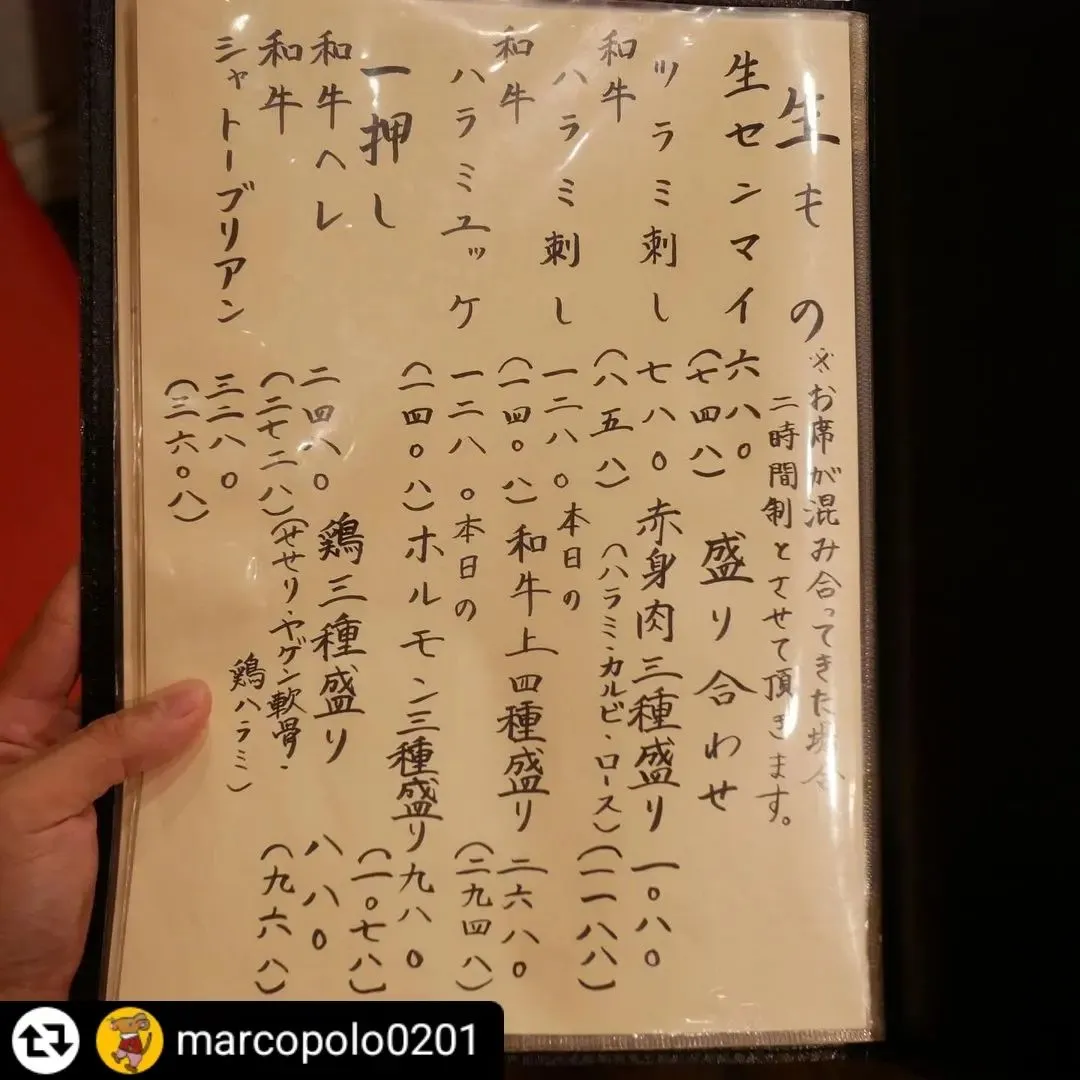 生もの
※お席が混み合ってきた場合
二時間制とさせて頂きます。
生センマイ 六八〇
(七四八)
ツラミ刺し 七八〇
(八五八)
和牛
ハラミ刺し 一二八〇
(一四〇八)
和牛
ハラミユッケ 一二八〇
(一四〇八)
一押し
和牛ヘレ 二四八〇
(二七二八)
和牛
シャトーブリアン 三二八〇
(三六〇八)
盛り合わせ
赤身肉三種盛り 一〇八〇
(ハラミ・カルビ・ロース)
(一一八八)
本日の
和牛上四種盛り 二六八〇
(二九四八)
本日の
ホルモン三種盛り 九八〇
(一〇七八)
鶏三種盛り 八八〇
(せせり・ヤゲン軟骨・
鶏ハラミ)
(九六八)
marcopolo0201